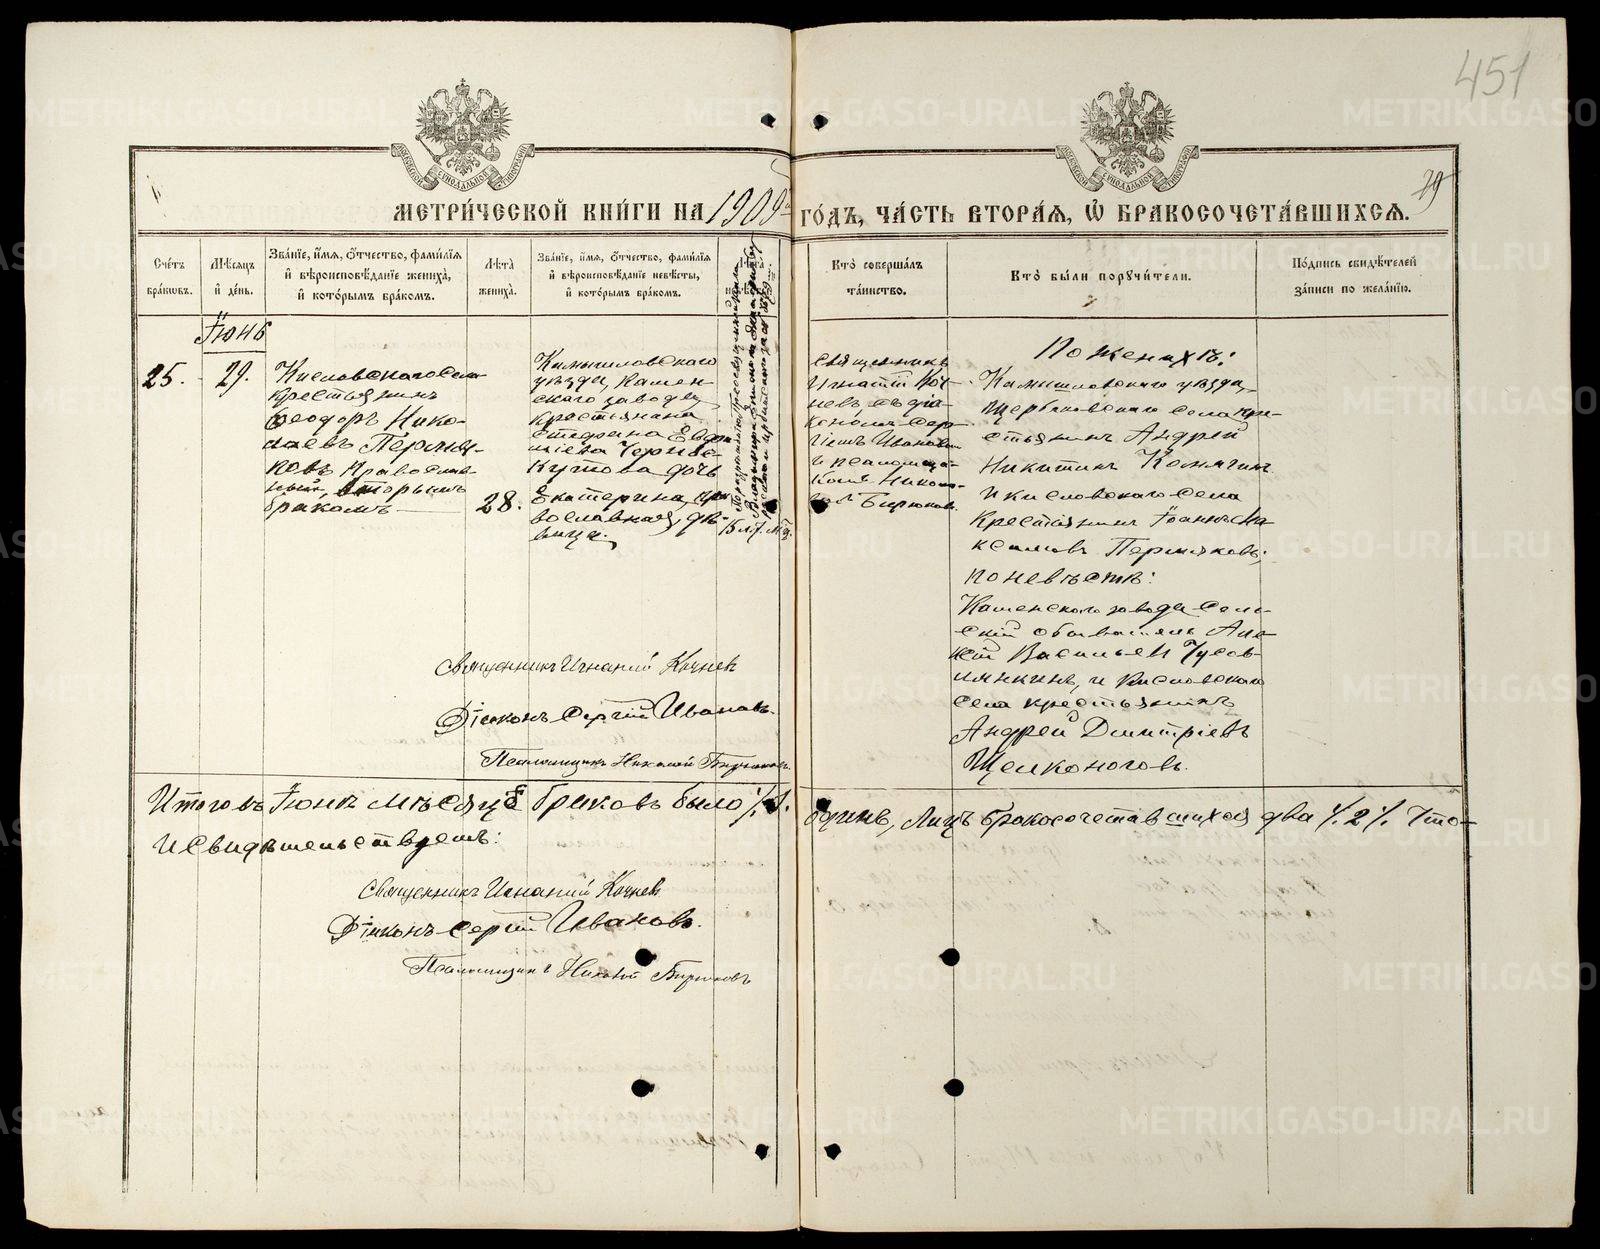 451
79
МЕТРИ́ЧЕСКОЙ КНИ́ГИ НА 1909й ГО́ДЪ, ЧА́СТЬ ВТОРА́Я, Ѽ БРАКОСОЧЕТА́ВШИХСЯ.
Сче́тъ бра́кѡвъ.
Мѣ́сяцъ и҆ де́нь.
Зва́нїе, и҆́мя, ѻ҆́тчество, фами́лїя
и҆ вѣроисповѣ́данїе жениха̀,
и҆ кото́рымъ бра́комъ.
Лѣ́та жениха̀.
Зва́нїе, и҆́мя, ѻ҆́тчество, фами́лїя
и҆ вѣроисповѣ́данїе невѣ́сты,
и҆ кото́рымъ бра́комъ.
Лѣ́та
Кто̀ соверша́лъ
та́инство.
Кто̀ бы́ли порꙋчи́тели.
По́дпись свидѣ́телей
за́писи по жела́нїю.
Іюнь
25.
29.
Кисловскаго села
крестьянинъ
Ѳеодоръ Нико-
лаевъ Пермя-
ковъ, Православ-
ный, вторымъ
бракомъ
28.
Камышловскаго
уѣзда, Камен-
скаго завода,
крестьянина
Стефана
Черно-
скутова дочь
Екатерина, пра-
вославная, дѣ-
вица.
15 л. 7. м.
Священникъ
Игнатій Коч-
невъ съ діа-
кономъ Сер-
гіемъ Ивановым
и псаломщи-
комъ Никола-
емъ Бирюков.
По женихѣ:
Камышловскаго уѣзда,
Щербаковскаго села кре-
стьянинъ Андрей
Никитинъ
и Кисловскаго села
крестьянинъ Іоаннъ Ма-
ксимовъ Пермяковъ;
по невѣстѣ:
Каменскаго завода сель-
скій обыватель Але-
ксѣй Васильевъ Чусов-
лянкинъ, и Кисловскаго
села крестьянинъ
Андрей Димитріевъ
Щелконоговъ.
Священникъ Игнатій Кочневъ
Діаконъ Сергій Ивановъ.
Псаломщикъ Николай Бирюковъ.
Итого въ Іюнѣ мѣсяцѣ браковъ было ./.1. одинъ, Лицъ бракосочетавшихся два ./. 2 /. Что
и свидѣтельствуемъ:
Священникъ Игнатій Кочневъ
Діаконъ Сергій Ивановъ.
Псаломщикъ Николай Бирюковъ
METRIKI.GASO-URAL.RU